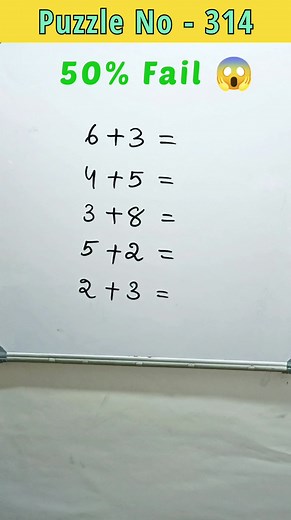 Puzzle No - 314
50% Fail 😱
6+3 =
4+5 =
3+8 =
5+2 =
2+3 =